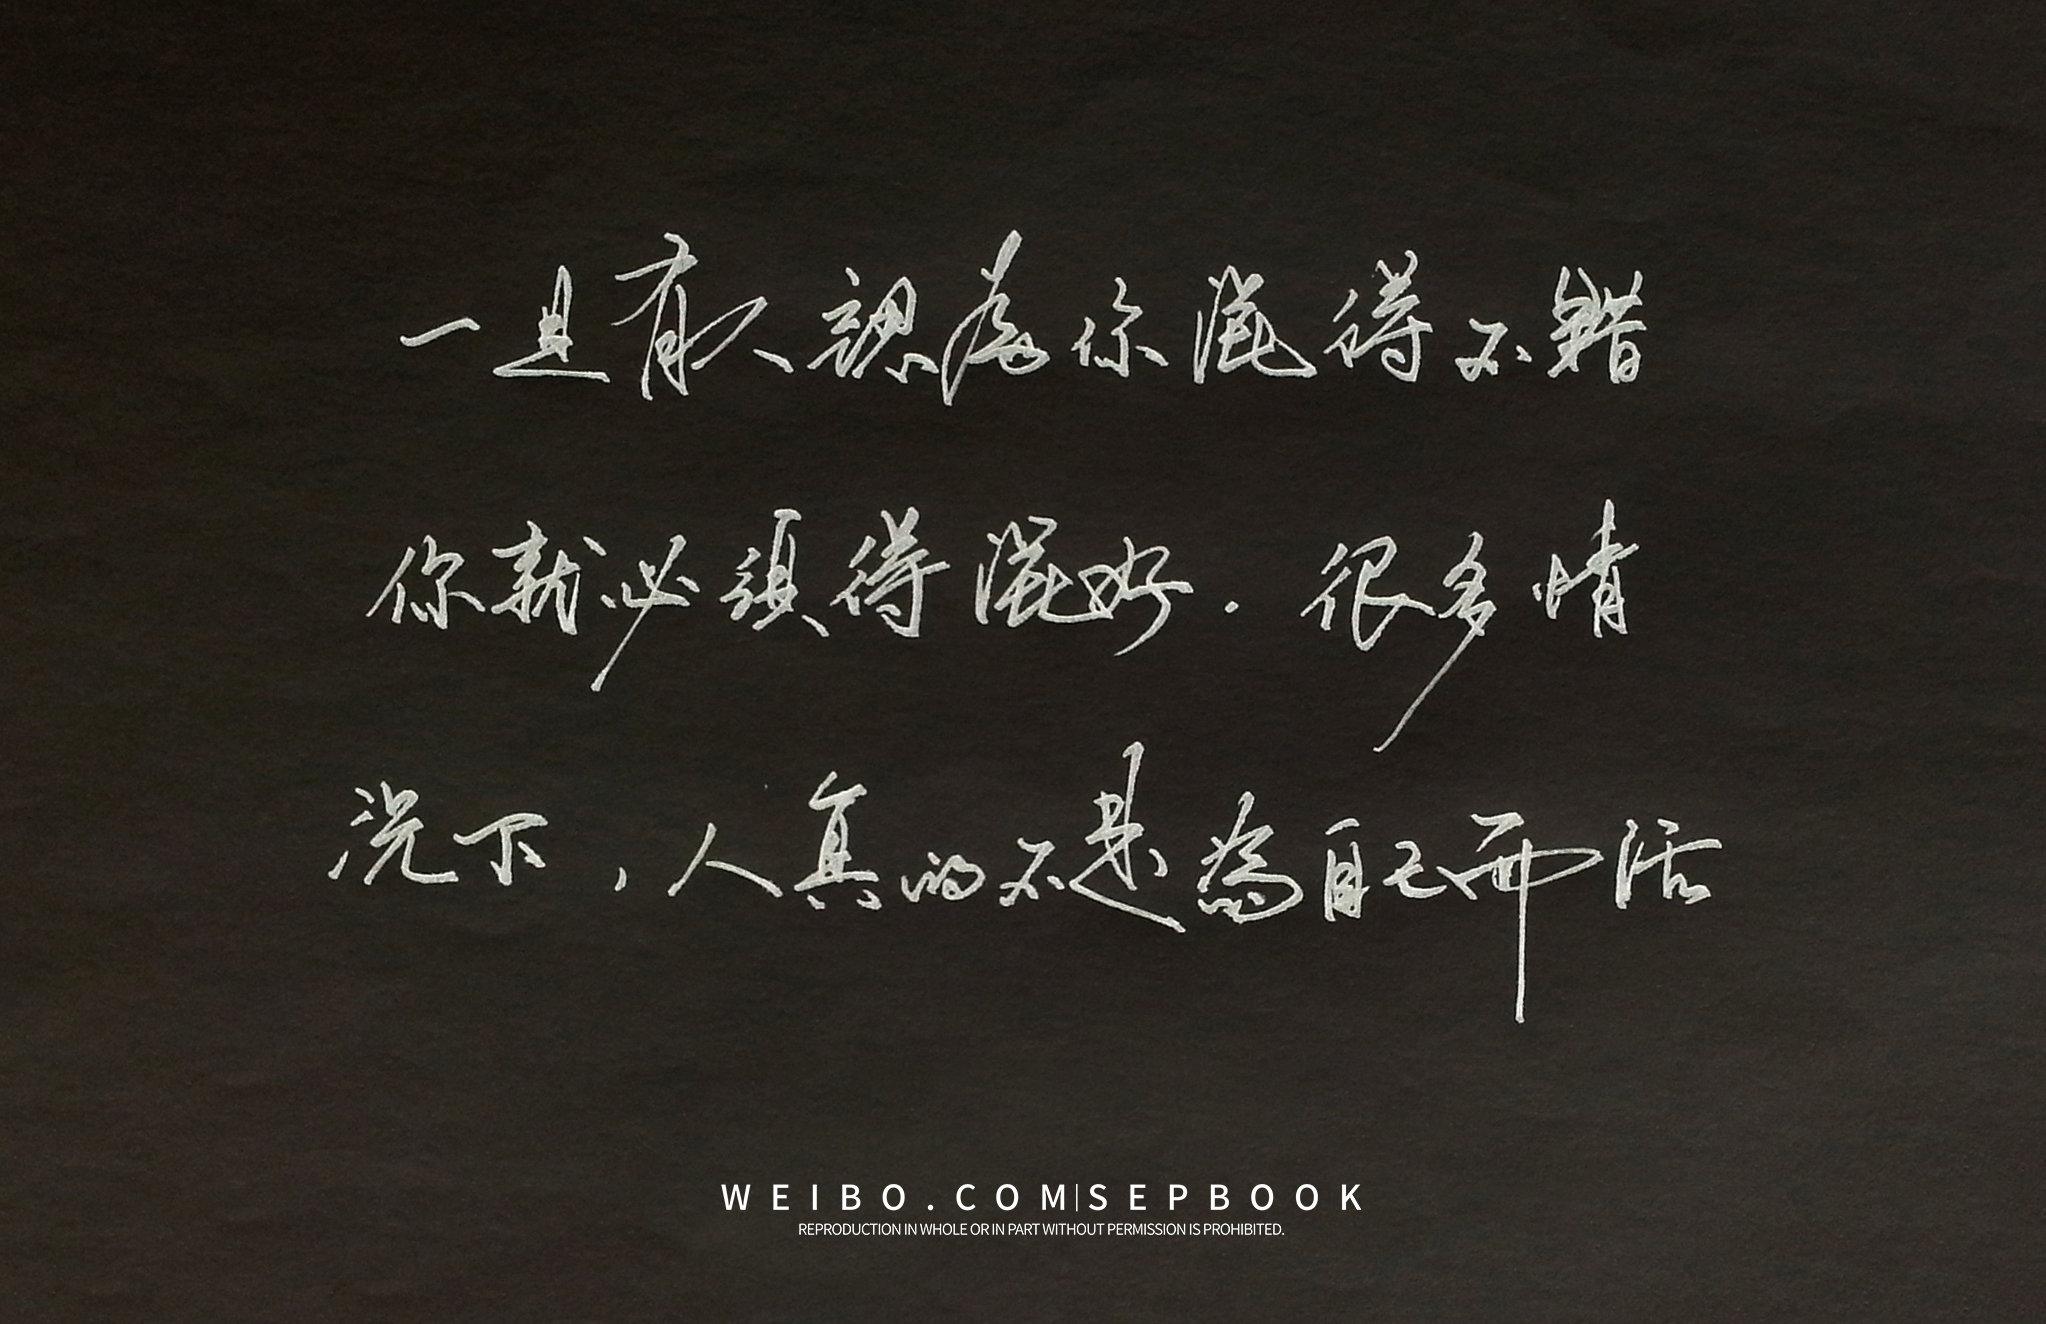 一旦有人認為你混得不錯
你就必須得混好.很多情
況下,人真的不是為自己而活
WEIBO.COM|SEPBOOK
REPRODUCTION IN WHOLE OR IN PART WITHOUT PERMISSION IS PROHIBITED.